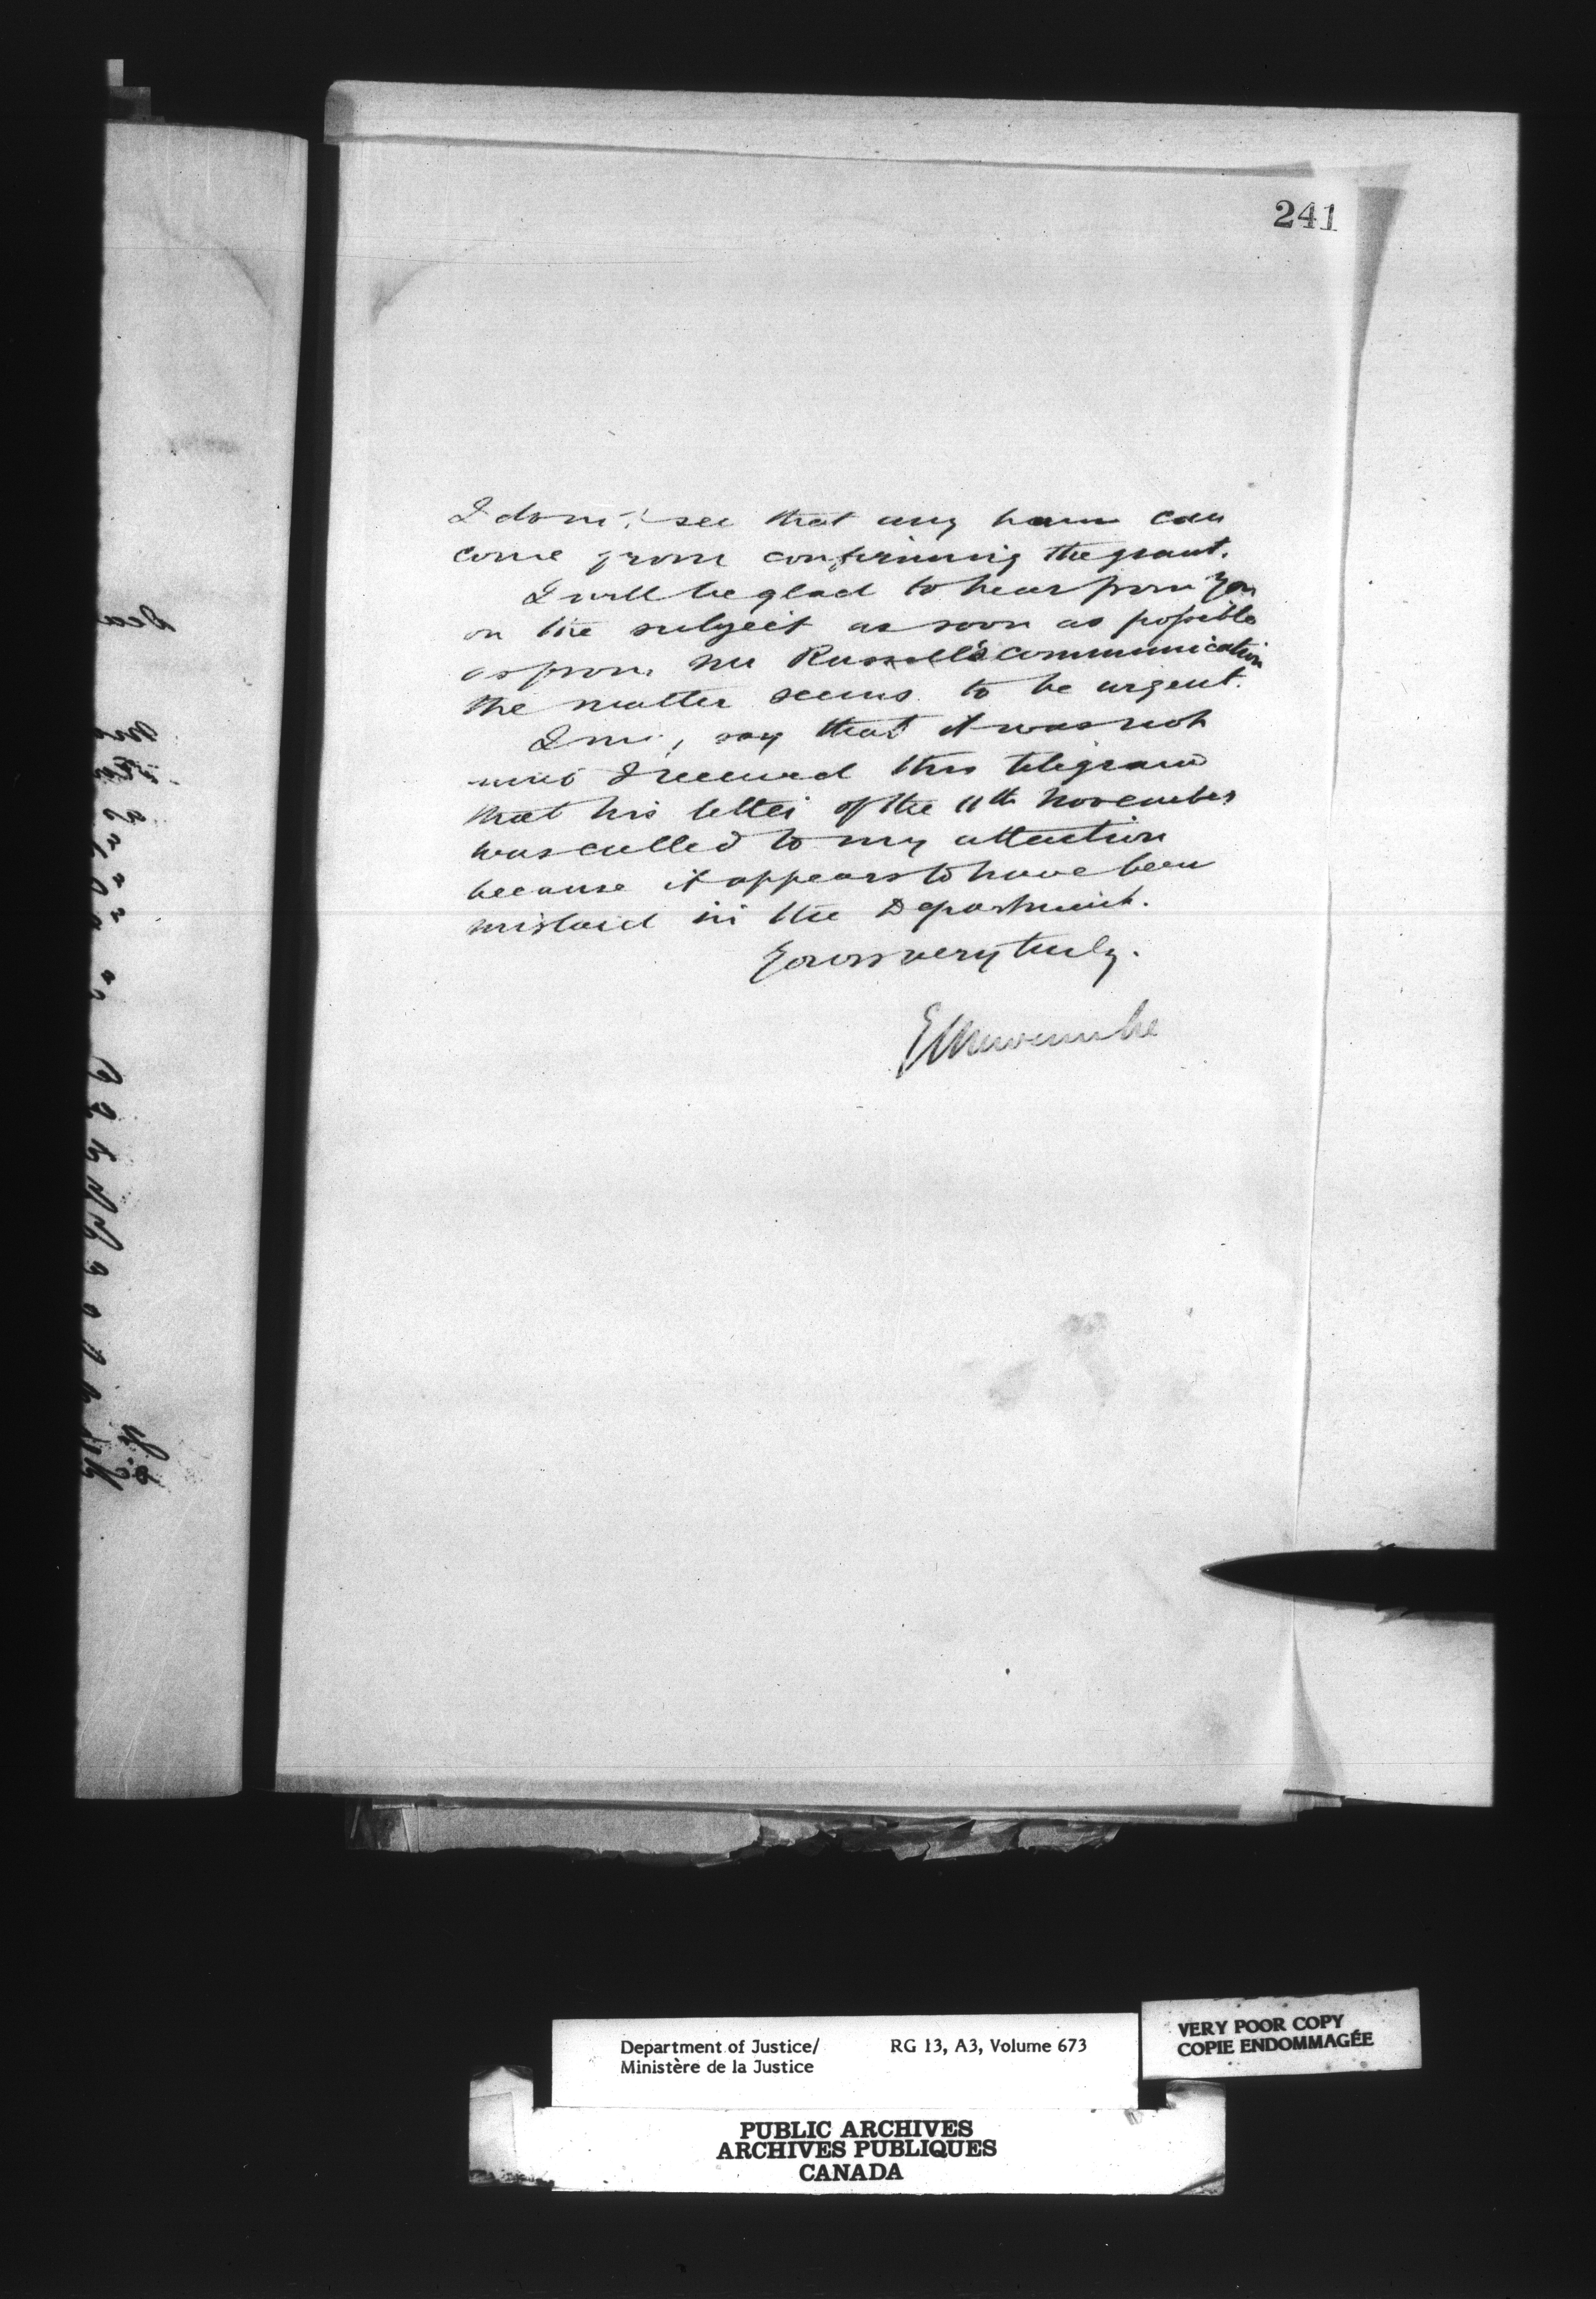 241
I don't see that any harm can
come from confirming the grant.
I will be glad to hear from you
on the subject as soon as possible
as from Mr Russell's communication
the matter seems to be urgent.
I may say that it was not
until I received this telegram
that his letter of the 11th November
was called to my attention
because it appears to have been
mislaid in the Department.
Yours very truly.
E L Newcombe
Department of Justice/
Ministère de la Justice
RG 13, A3, Volume 673
VERY POOR COPY
COPIE ENDOMMAGÉE
PUBLIC ARCHIVES
ARCHIVES PUBLIQUES
CANADA